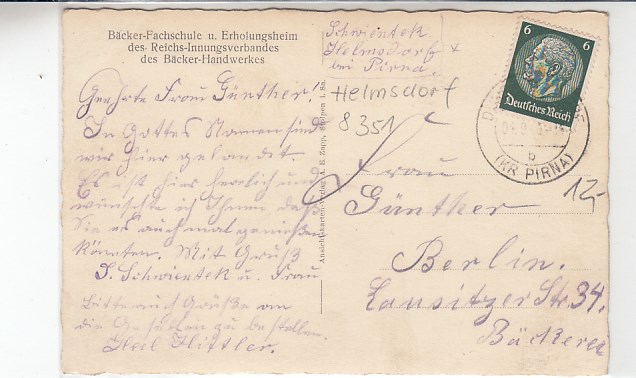 Bäcker-Fachschule u. Erholungsheim
des Reichs-Innungsverbandes
des Bäcker-Handwerkes
Geehrte Frau Günther!
In Gottes Namen sind
wir hier gelandet.
Es ist hier herrlich und
wünschte ich Ihnen daß
Sie es auch mal genießen
könnten. Mit Gruß
J. Schwientek u. Frau
Bitte auch Grüße an
die Gesellen zu bestellen.
Heil Hittler.
Ansichtskarten-Verlag A. R. Zapp, i. Sa.
Schwientek
Helmsdorf
bei Pirna.
Helmsdorf
8351
6 6
Deutsches Reich
b
(KR PIRNA)
12,-
Frau
Günther
Berlin.
Lausitzer Str. 34.
Bäckerei